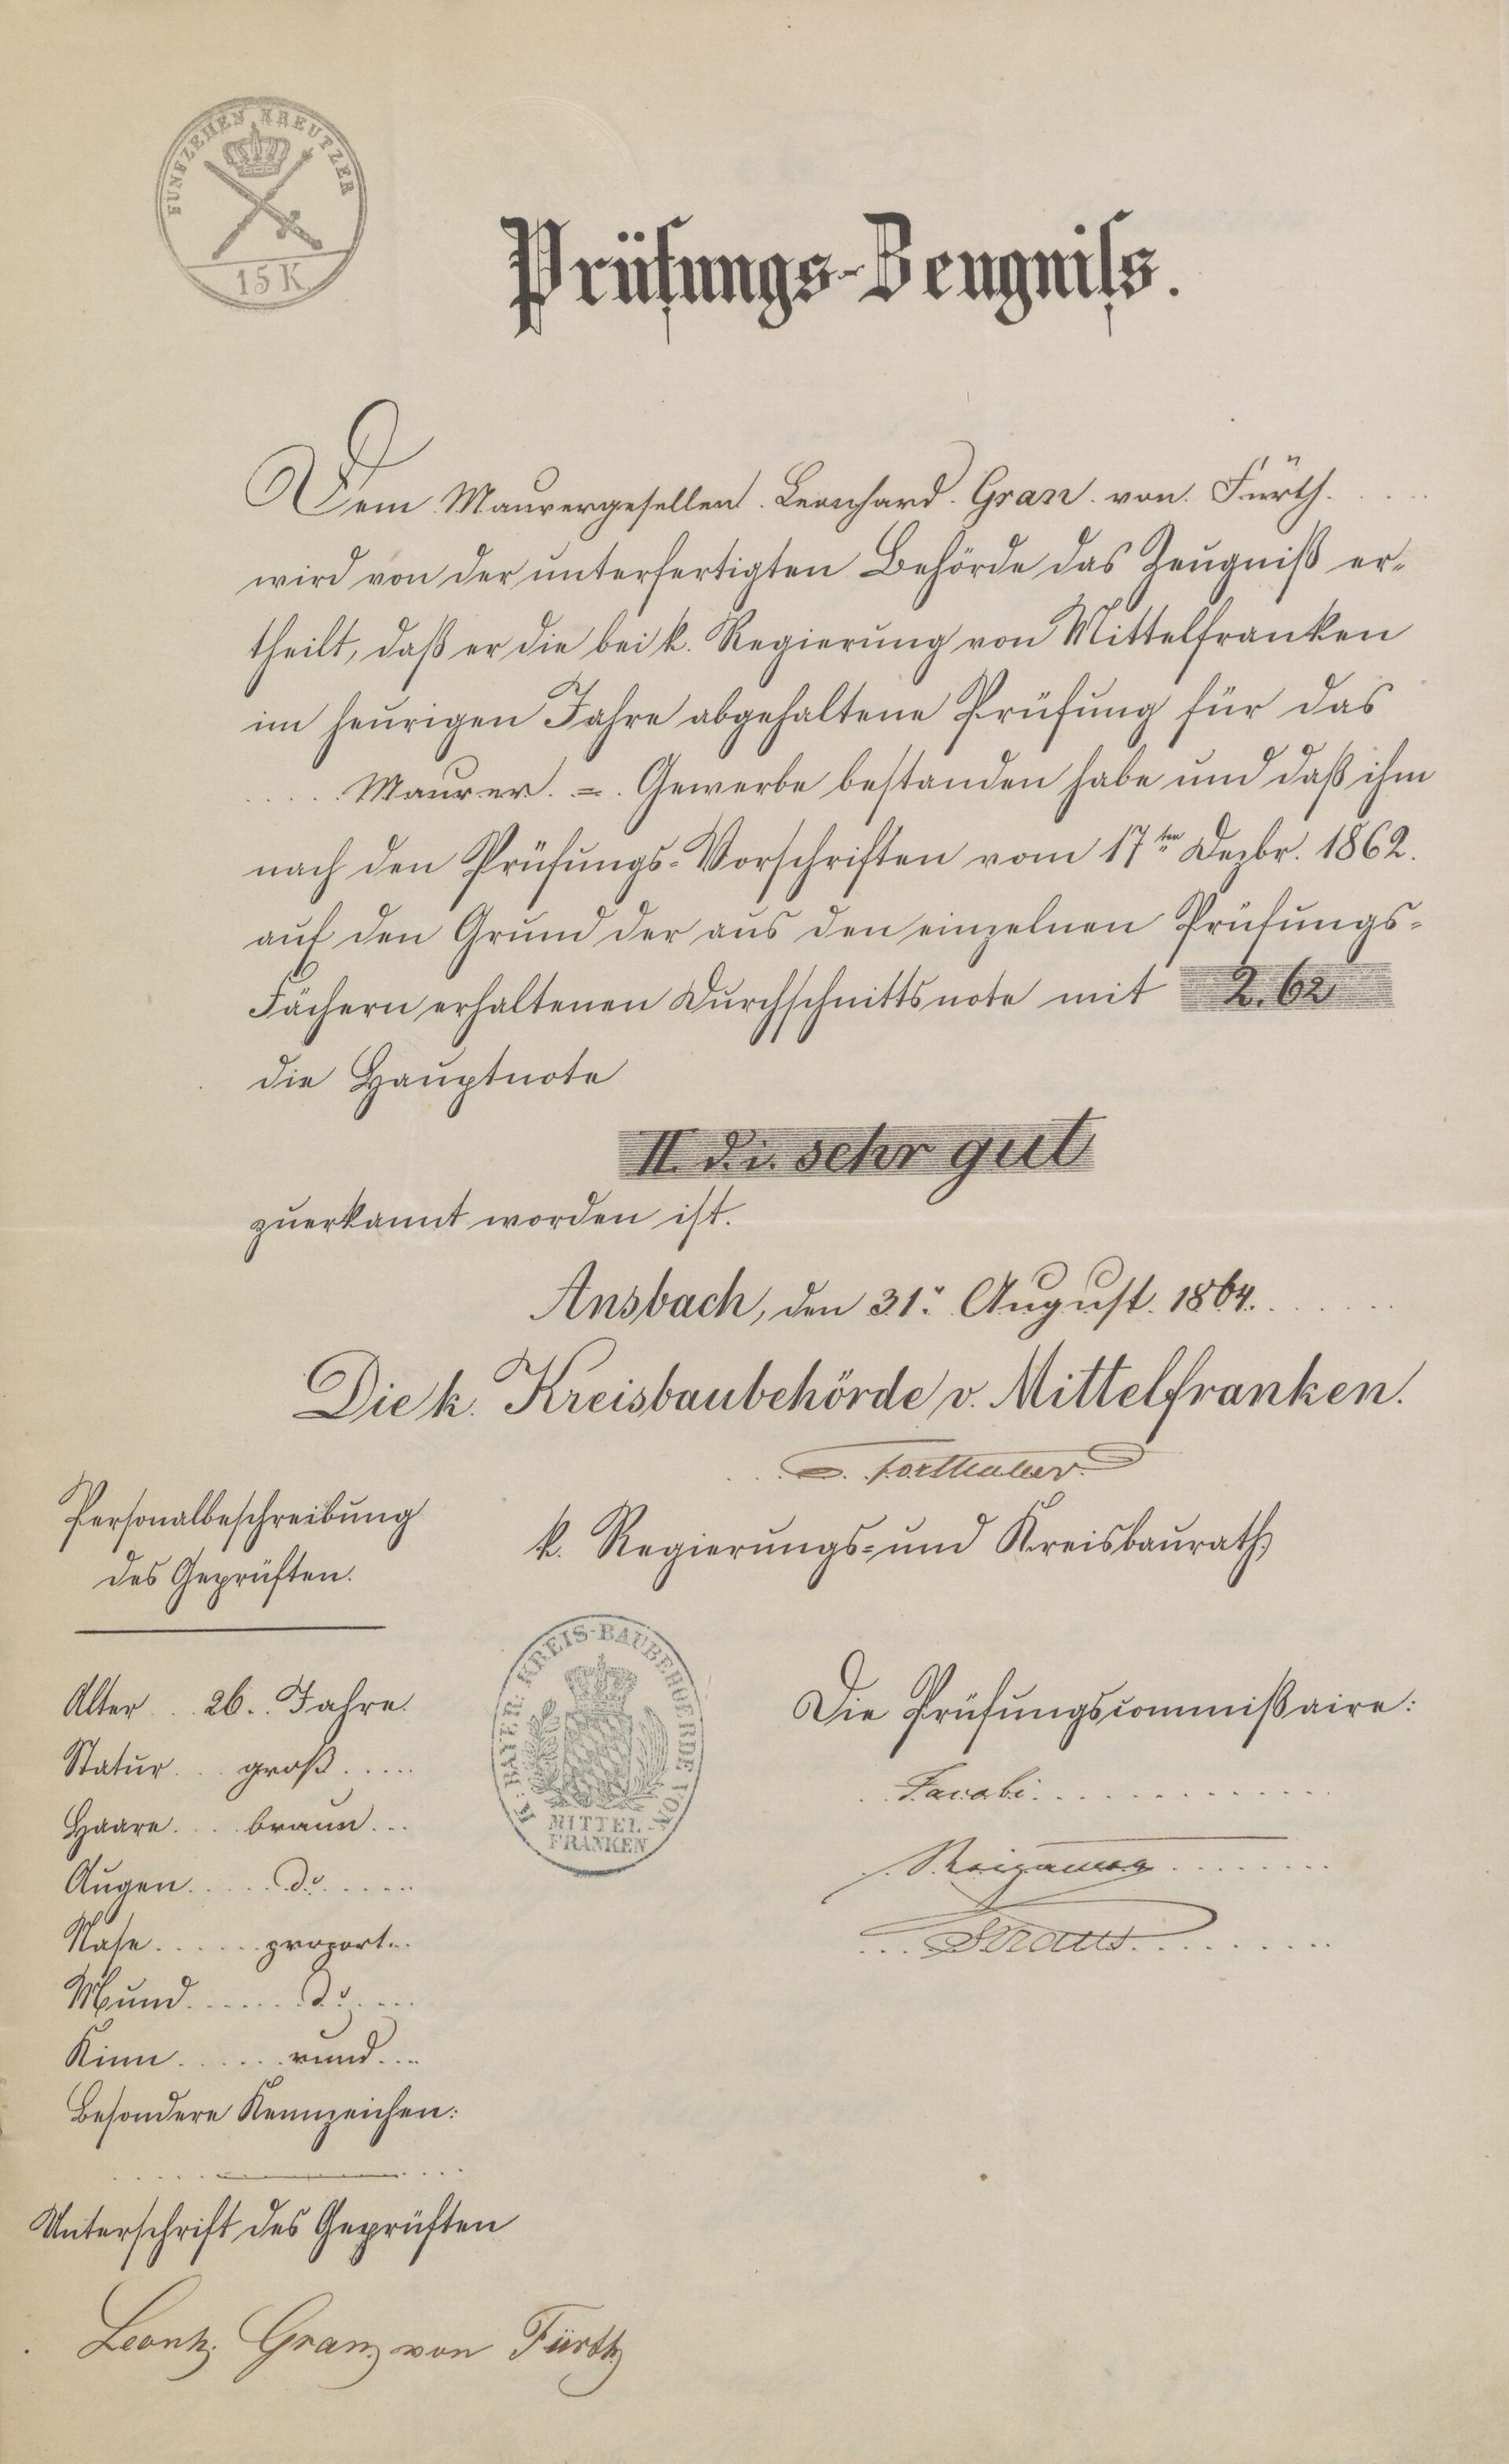 FUNFZEHEN KREUTZER
15 K
Prüfungs-Zeugniſs.
Dem Maurergesellen Leonhard Gran von Fürth
wird von der unterfertigten Behörde das Zeugniß er-
theilt, daß er die bei k. Regierung von Mittelfranken
im heurigen Jahre abgehaltene Prüfung für das
Maurer = Gewerbe bestanden habe und daß ihm
nach den Prüfungs-Vorschriften vom 17ten Dezbr. 1862.
auf den Grund der aus den einzelnen Prüfungs-
Fächern erhaltenen Durchschnittsnote mit 2.62
die Hauptnote
II. d. i. sehr gut
zuerkannt worden ist.
Ansbach, den 31. August 1864.
Die k. Kreisbaubehörde v. Mittelfranken.
k. Regierungs- und Kreisbaurath
Personalbeschreibung
des Geprüften.
Alter 26. Jahre.
Statur groß
Haare braun
Augen do
Nase proport.
Mund do
Kinn rund
Besondere Kennzeichen:
Unterschrift des Geprüften
Leonh. Gran von Fürth
K. BAYER. KREIS-BAUBEHOERDE VON
MITTEL-
FRANKEN
Die Prüfungscommißaire:
Jacobi
Straus